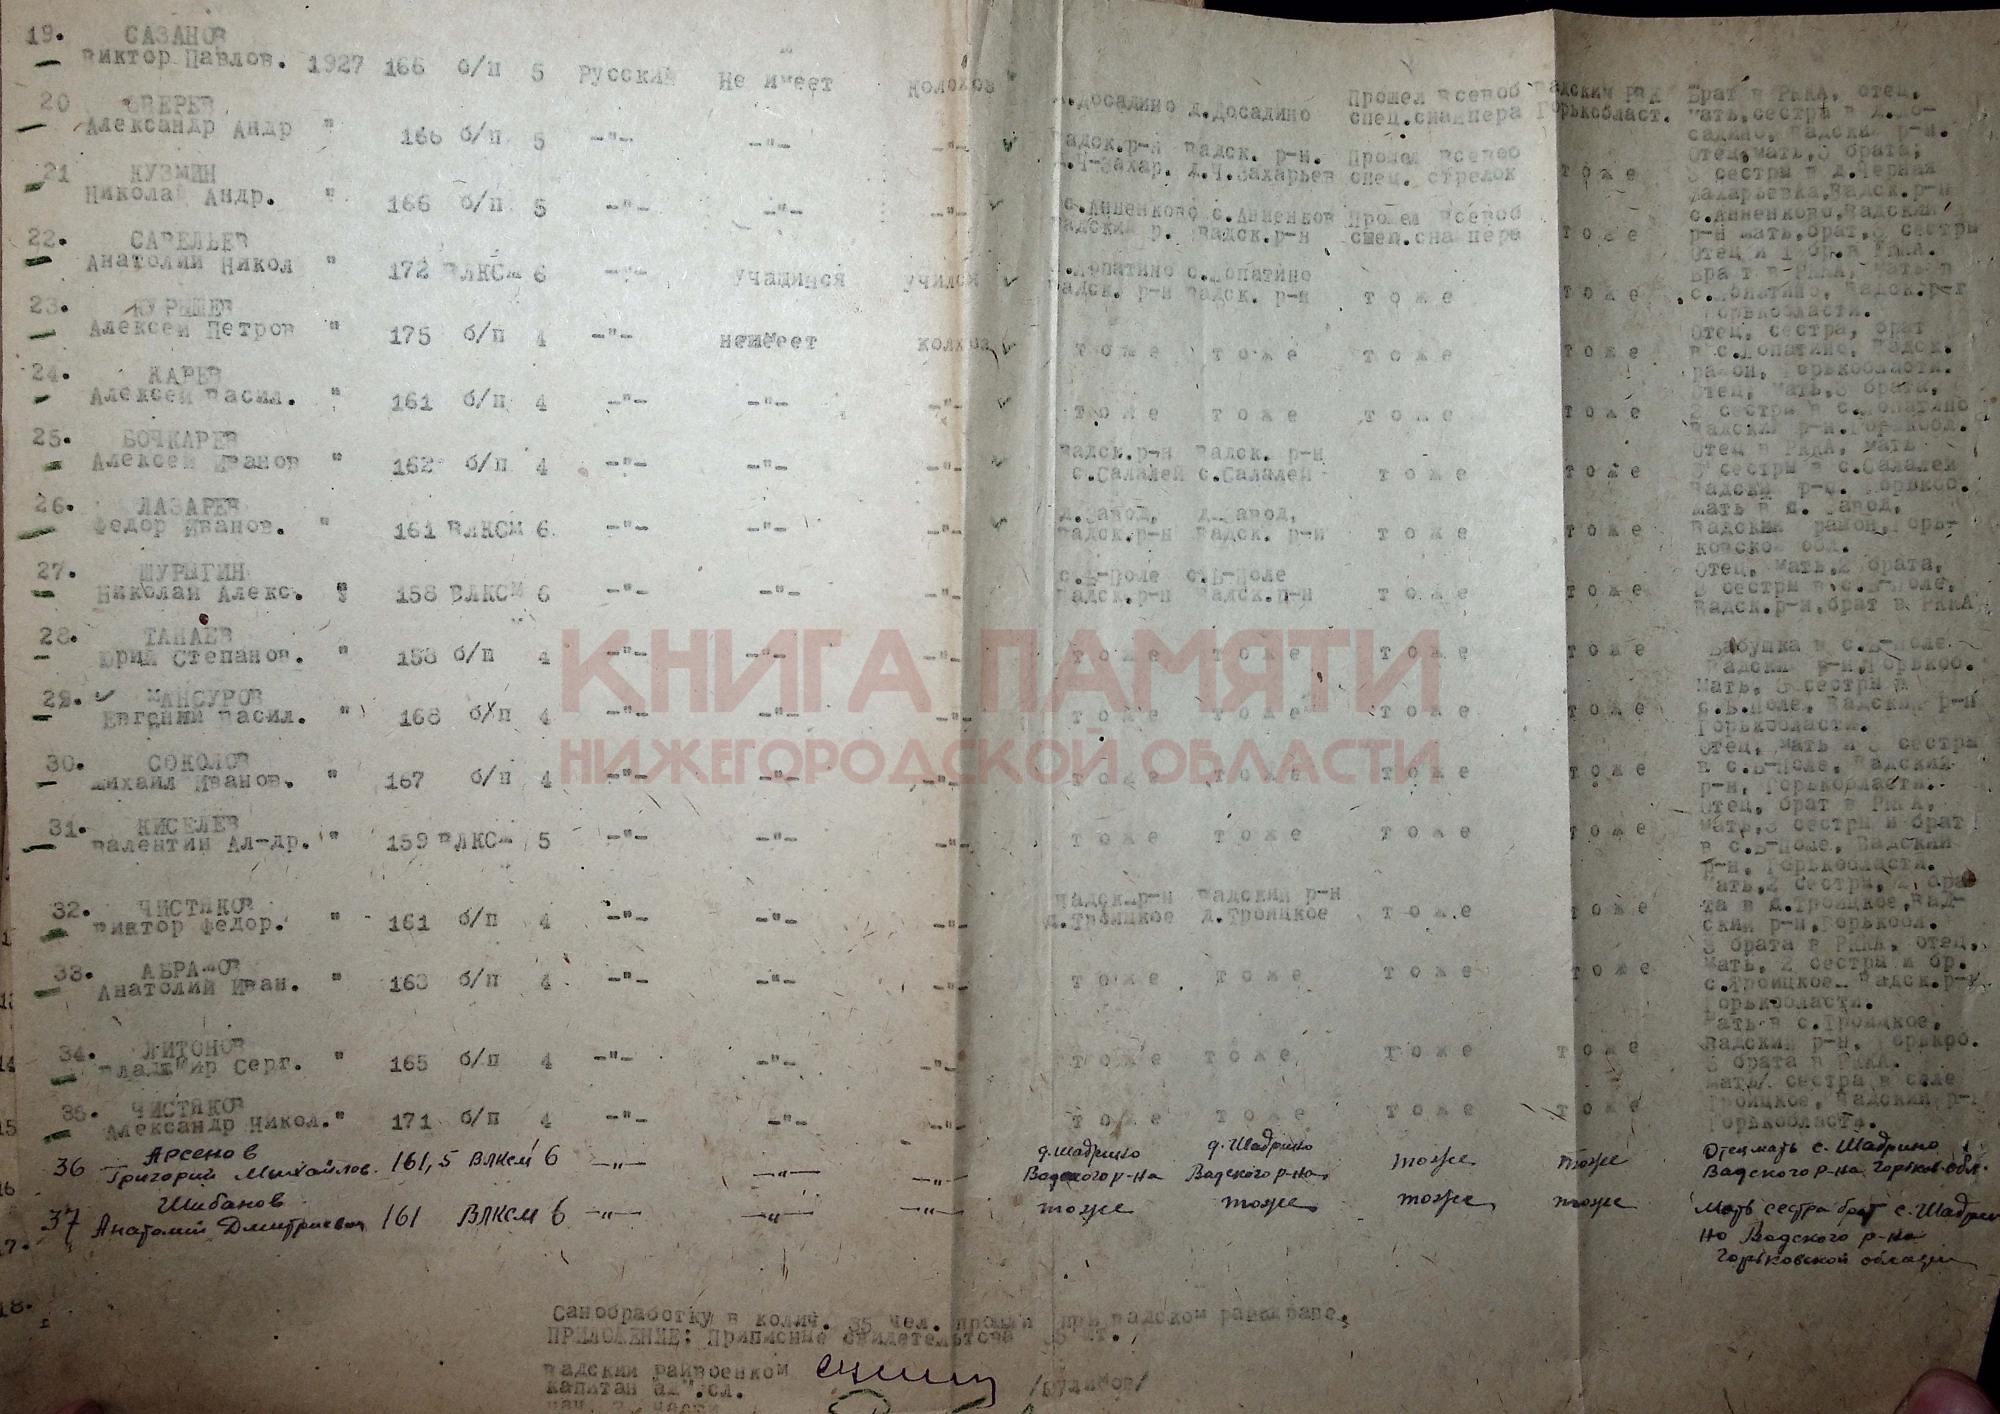 19. САЗАНОВ
Виктор Павлов. 1927 166 б/п 5 Русский Не имеет колохоз д.Досадино д.Досадино Прошел Всевоб спец.снайпера Вадский рай Горькобласт. Брат в РККА, отец,
мать,сестры в д.До-
садино, Вадский р-н.
20 ЗВЕРЕВ
Александр Андр " 166 б/п 5 -"- -"- -"- Вадск.р-н Вадск. р-н. Прошел Всевоб
д.Ч-Захар. д.Ч.Захарьев спец. стрелок тоже Отец,мать,3 брата,
3 сестры в д.Черная
Захарьевка,Вадск.р-н
21 КУЗМИН
Николай Андр. " 166 б/п 5 -"- -"- -"- с.Анненково с.Анненков Прошел Всевоб
Вадский р. Вадск.р-н спец.снайпера тоже с.Анненково,Вадский
р-н мать,брат,3 сестры
Отец и 1 бр.в РККА.
22. САВЕЛЬЕВ
Анатолий Никол " 172 ВЛКСМ 6 -"- учащийся учился с.Лопатино с.Лопатино
Вадск. р-н Вадск. р-н тоже тоже Брат в РККА, мать в
с.Лопатино, Вадск.р-н
Горькобласти.
23. КУРЫШЕВ
Алексей Петров " 175 б/п 4 -"- неимеет колхоз тоже тоже тоже тоже Отец, сестра, брат
в с.Лопатино, Вадск.
район, Горькобласти.
24. КАРЕВ
Алексей Васил. " 161 б/п 4 -"- -"- -"- тоже тоже тоже тоже Отец, мать,3 брата,
2 сестры в с.Лопатино
Вадский р-н.Горькобл.
25. БОЧКАРЕВ
Алексей Иванов " 162 б/п 4 -"- -"- -"- Вадск.р-н Вадск. р-н
с.Салалей с.Салалей тоже тоже Отец в РККА, мать
3 сестры в с.Салалей
Вадски р-о. Горькоб.
26. ЛАЗАРЕВ
Федор Иванов. " 161 ВЛКСМ 6 -"- -"- -"- д.Завод, д.Завод,
Вадск.р-н Вадск. р-н тоже тоже Мать в д. Завод,
Вадский район,Горь-
ковской обл.
27. ШУРЫГИН
Николай Алекс. " 158 ВЛКСМ 6 -"- -"- -"- с.В-Поле с.В-Поле
Вадск.р-н Вадск.р-н тоже тоже Отец, мать,2 брата,
3 сестры в с.В-Поле,
Вадск.р-н,брат в РККА
28. ТАНАЕВ
Юрий Степанов. " 158 б/п 4 -"- -"- -"- тоже тоже тоже тоже Бабушка в с.В-Поле
Вадский р-н,Горькоб.
29. МАНСУРОВ
Евгений Васил. " 168 б/п 4 -"- -"- -"- тоже тоже тоже тоже Мать, 3 сестры в
с.В.Поле, Вадский р-н
Горькобласти.
30. СОКОЛОВ
Михаил Иванов. " 167 б/п 4 -"- -"- -"- тоже тоже тоже тоже Отец, мать и 3 сестры
в с.В-Поле, Вадский
р-н, Горькобласти.
31. КИСЕЛЕВ
Валентин Ал-др. " 159 ВЛКСМ 5 -"- -"- -"- тоже тоже тоже тоже Отец, брат в РККА,
мать,3 сестры и брат
в с.В-Поле, Вадский
р-н, Горькобласти.
32. ЧИСТЯКОВ
Виктор Федор. " 161 б/п 4 -"- -"- -"- Вадск.р-н Вадский р-н
д.Троицкое д.Троицкое тоже тоже Мать,2 сестры,2 бра-
та в д.Троицкое,Вад-
ский р-н,Горькобл.
33. АБРАМОВ
Анатолий Иван. " 163 б/п 4 -"- -"- -"- тоже тоже тоже тоже 3 брата в РККА, отец,
мать, 2 сестры и бр.
с.Троицкое Вадск.р-н
Горькобласти.
34. ЛИТОНОВ
Владимир Серг. " 165 б/п 4 -"- -"- -"- тоже тоже тоже тоже Мать в с.Троицкое,
Вадский р-н, Горькоб.
3 брата в РККА.
35. ЧИСТЯКОВ
Александр Никол." 171 б/п 4 -"- -"- -"- тоже тоже тоже тоже мать, сестра в селе
Троицкое, Вадский р-н
Горькобласти.
36 Арсенов
Григорий Михайлов. 161,5 ВЛКСМ 6 -"- -"- -"- д.Шадрино д.Шадрино
Вадского р-на Вадского р-на тоже тоже Отец мать с. Шадрино
Вадского р-на Горьков.обл.
37 Шибанов
Анатолий Дмитриевич 161 ВЛКСМ 6 -"- -"- -"- тоже тоже тоже тоже Мать сестра брат с. Шадри
но Вадского р-на
Горьковской области
Санобработку в колич. 35 чел. прошли при Вадском
ПРИЛОЖЕНИЕ: Приписные свидетельтсва 35 шт.
Вадский Райвоенком
капитан ад". сл. /Куликов/
Нач. 2 части
КНИГА ПАМЯТИ
НИЖЕГОРОДСКОЙ ОБЛАСТИ